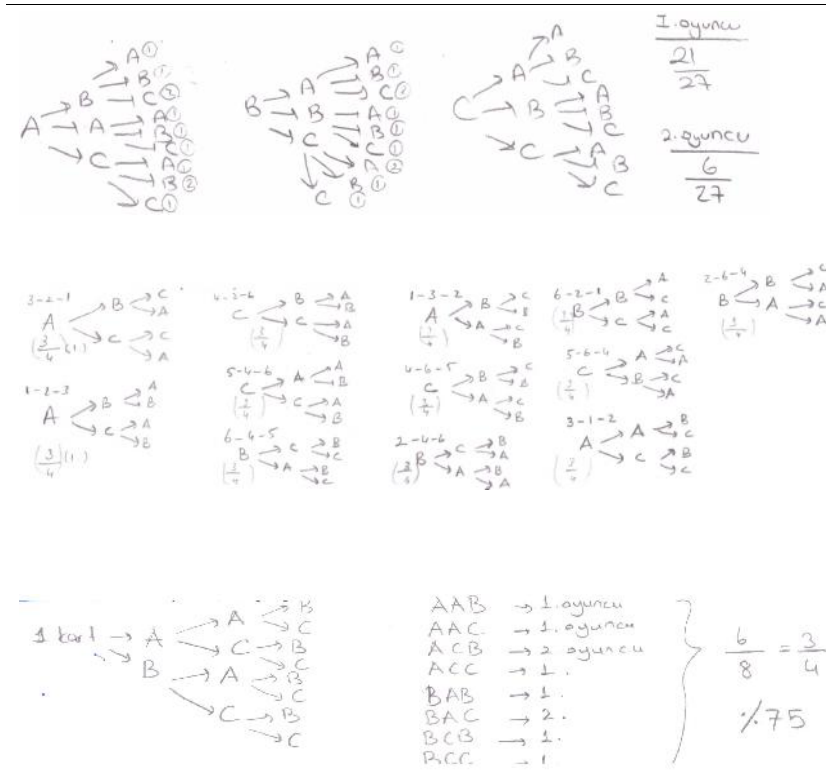 A B C A B C A① B① C② A① B① C① A① B② C①
B A B C A① B① C① A① B① C① A② B① C①
C A B C A B C A B C A B C
1. oyuncu
21
27
2. oyuncu
6
27
3-2-1
A B C C A C A
(3/4)(1.)
1-2-3
A B C A B A B
(3/4)(1.)
C B C A B A B
(3/4)
5-4-6
C A C A B A B
(3/4)
6-4-5
B C A B C B C
(3/4)
1-3-2
A B A C B C B
(3/4)
4-6-5
C B A C B C B
(3/4)
2-4-6
B C A B A B A
(3/4)
6-2-1
B B C A C A C
(3/4)
5-6-4
C A B C A C A
(3/4)
3-1-2
A A C B C B C
(3/4)
2-6-4
B B A C A C A
(3/4)
1 kart → A B A C A C B C B C B C B C
AAB → 1. oyuncu
AAC → 1. oyuncu
ACB → 2. oyuncu
ACC → 1.
BAB → 1.
BAC → 2.
BCB → 1.
BCC → 1
6/8 = 3/4
%75